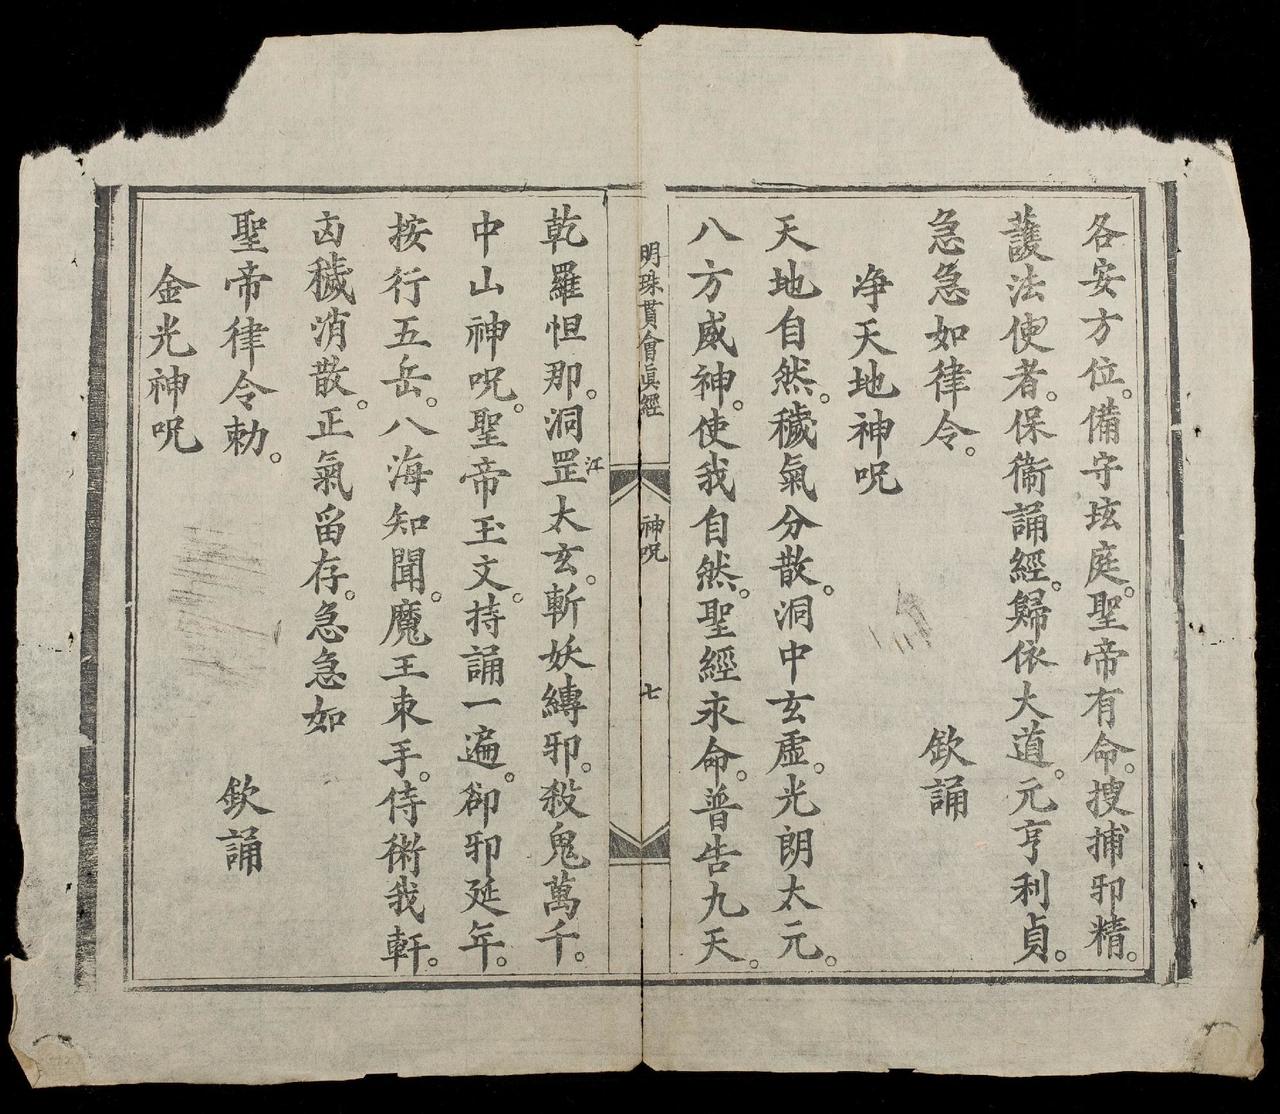 各安方位。備守垓庭。聖帝有命。搜捕邪精。
護法使者。保衛誦經。歸依大道。元亨利貞。
急急如律令。 欽誦
净天地神呪
天地自然。穢氣分散。洞中玄虛。光朗太元。
八方威神。使我自然。聖經永命。普告九天。
明珠貫會眞經 神呪 七
乾羅怛那。洞罡江太玄。斬妖縛邪。殺鬼萬千。
中山神呪。聖帝玉文。持誦一遍。卻邪延年。
按行五岳。八海知聞。魔王束手。侍衛我軒。
凶穢消散。正氣畱存。急急如
聖帝律令勅。 欽誦
金光神呪